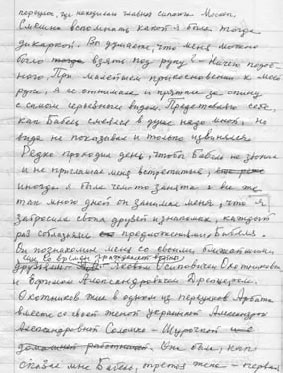 переулк, где находились главные Москвы.
Смешно вспоминать какой я была тогда
дикаркой. Вы думаете, что меня можно
было взять под руку? - Ничего подоб-
ного. При малейшем прикосновении к моей
руке, я ее отнимала и прятала за спину
с самым серьезным видом. Представляю себе
как Бабель смеялся в душе надо мной, но
вида не показывал и только извинялся.
Редко проходил день, чтобы Бабель не звонил
и не приглашал меня встретиться,
иногда я была чем-то занята и все же
так много дней он занимал меня, что я
забросила своих друзей и знакомых, каждый
раз соблазняясь предложениями Бабеля.
Он познакомил меня со своими ближайшими
друзьями Яковом Осиповичем Охотниковым
и Ефимом Александровичем Дрейцером.
Охотников жил в одном из переулков Арбата
вместе со своей женой украинкой Александрой
Александровной Соломко - Шурочкой
домашней работницей. Она была, как
сказал мне Бабель, третья жена - первая